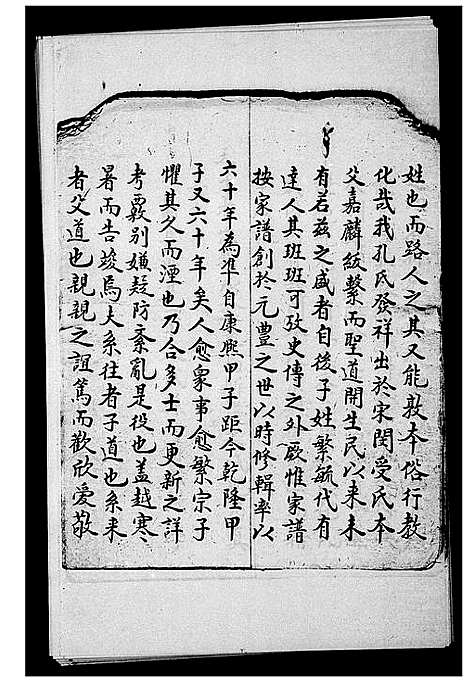 姓也而路人之其又能敦本俗行教
化哉我孔氏發祥出於宋閔受氏本
父嘉麟紱繫而聖道開生民以来未
有若兹之盛者自後子姓繁毓代有
達人其班班可攷史傳之外厥惟家譜
按家譜創於元豐之世以時修輯率以
六十年為準自康熈甲子距今乾隆甲
子又六十年矣人愈衆事愈繁宗子
懼其久而湮也乃合多士而更新之詳
考覈别嫌疑防紊亂是役也蓋越寒
暑而告竣焉夫系往者子道也系来
者父道也親親之誼篤而歡欣愛敬